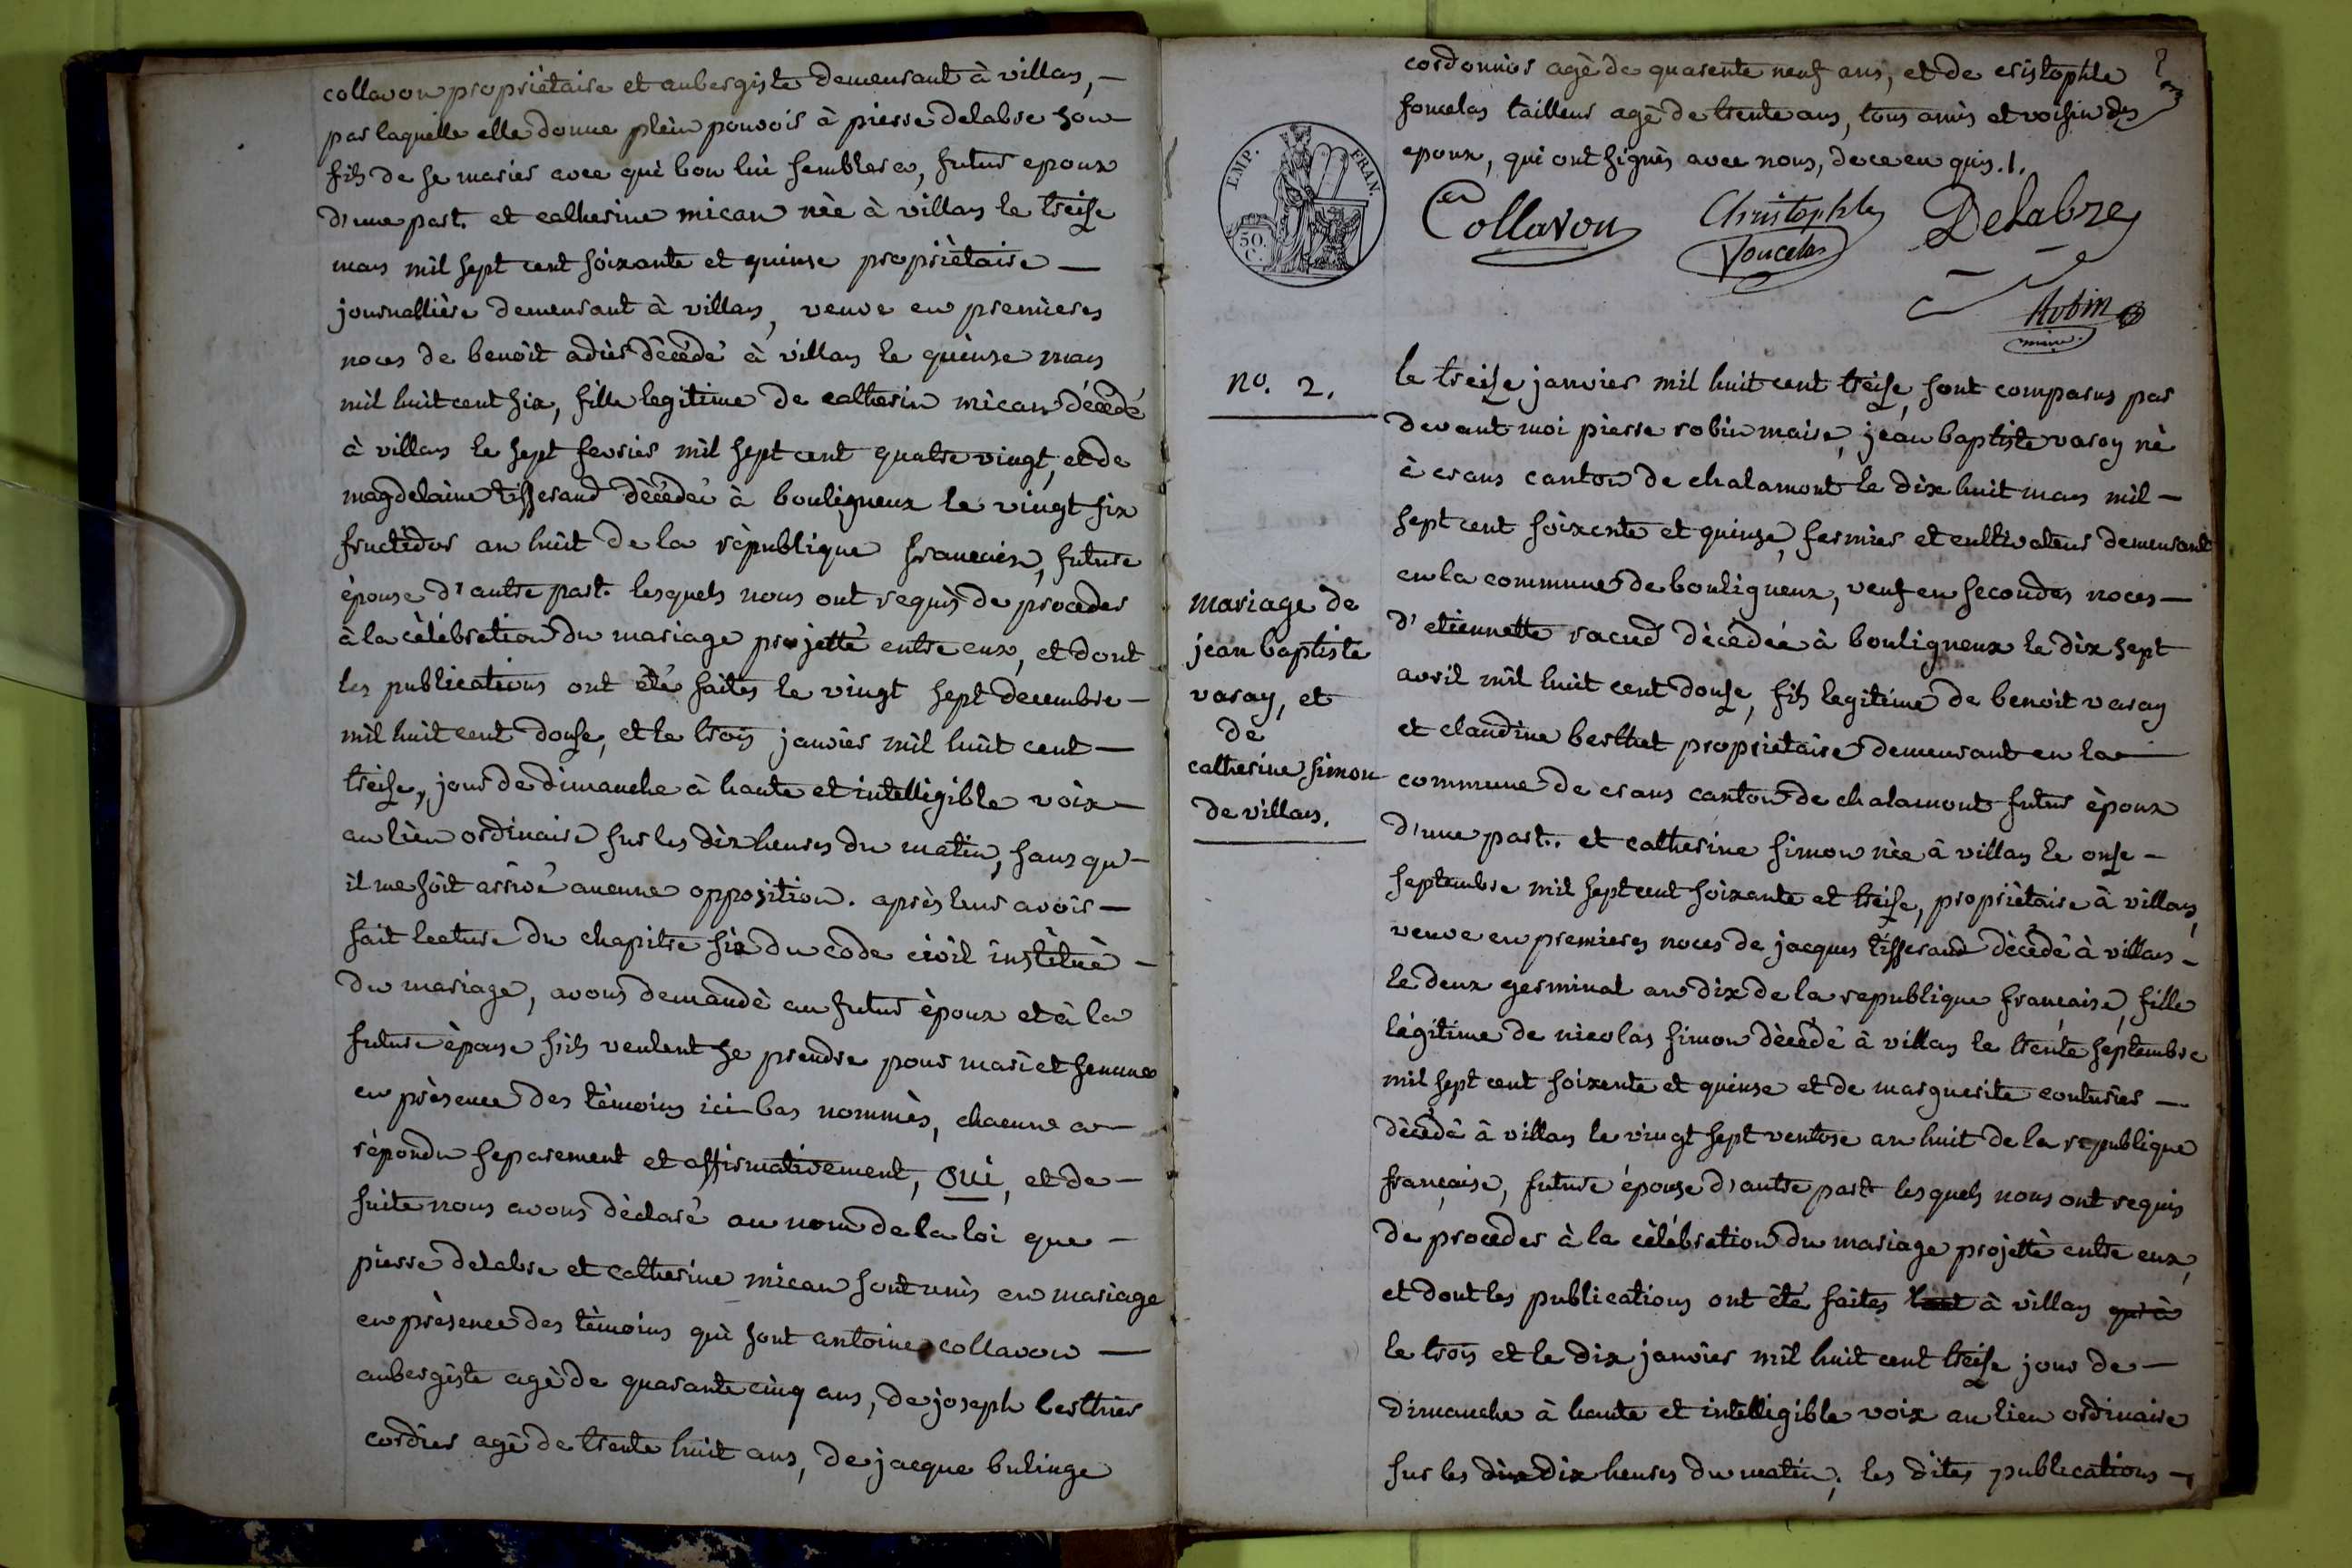 collavon propriètaire et aubergiste demeurant à villars, —
par laquelle elle donne plèin pouvoir à pierre delabre son
fils de se marier avec qui bon lui semblera, futur epoux
d'une part. et catherine mican nèe à villars le treise
mars mil sept cent soixante et quinse propriètaire —
journallière demeurant à villars, veuve en premieres
noces de benoit adier dècèdé à villars le quinse mars
mil huit cent six, fille legitime de catherin mican dècèdé
à villars le sept fevrier mil sept cent quatre vingt, et de
magdelaine tisserand dècèdeé à bouligneux le vingt six
fructidor an huit de la rèpublique francaise, future
épouse d'autre part. lesquels nous ont requis de proceder
à la cèlébration du mariage projetté entre eux, et dont
les publications ont été faites le vingt sept decembre —
mil huit cent douse, et le trois janvier mil huit cent —
treise, jour de dimanche à haute et intelligible voix —
au lieu ordinaire sur les dix heures du matin, sans qu'-
il me soit arrivé aucune opposition. après leur avoir —
fait lecture du chapitre six du code civil institué —
du mariage, avons demandè au futur èpoux et à la
future èpouse s'ils veulent se prendre pour mari et femme
en prèsence des tèmoins ici-bas nommès, chacune a —
rèpondu separement et affirmativement, oui, et de —
suite nous avons dèclaré au nom de la loi que —
pierre delabre et catherine mican sont unis en mariage
en prèsence des tèmoins qui sont antoine collavon —
aubergiste agè de quarante cinq ans, de joseph berthier
cordier agè de trente huit ans, de jacque bulinge
cordonnier agè de quarente neuf ans, et de cristophle
foucelas tailleur agè de trente ans, tous amis et voisin des
epoux, qui ont signès avec nous, de ce en quis. /.
EMP. FRAN.
50. C.
Collavon Christophle foucelas Delabre
Robin
maire
no. 2.
mariage de
jean baptiste
varay, et
de
catherine simon
de villars.
le treise janvier mil huit cent treise, sont comparus par
devant moi pierre robin maire, jean baptiste varay nè
à crans canton de chalamont le dix huit mars mil —
sept cent soixente et quinze, fermier et cultivateur demeurant
en la commune de bouligneux, veuf en secondes noces —
d'etiennette racud dècèdèe à bouligneux le dix sept
avril mil huit cent douse, fils legitime de benoit varay
et claudine berthet propriètaire demeurant en la —
commune de crans canton de chalamont futur èpoux
d'une part.. et catherine simon nèe à villars le onse —
septembre mil sept cent soixante et treise, propriètaire à villars,
veuve en premieres noces de jacques tisserand dècèdé à villars —
le deux germinal an dix de la republique francaise, fille
légitime de nicolas simon dècèdé à villars le trente septembre
mil sept cent soixente et quinse et de marguerite couturier —
dècèdé à villars le vingt sept ventose an huit de la republique
française, future épouse d'autre part lesquels nous ont requis
de proceder à la cèlébration du mariage projettè entre eux,
et dont les publications ont été faites tant à villars qu'à
le trois et le dix janvier mil huit cent treise jour de —
dimanche à haute et intelligible voix au lieu ordinaire
sur les dix dix heures du matin; les dites publications —